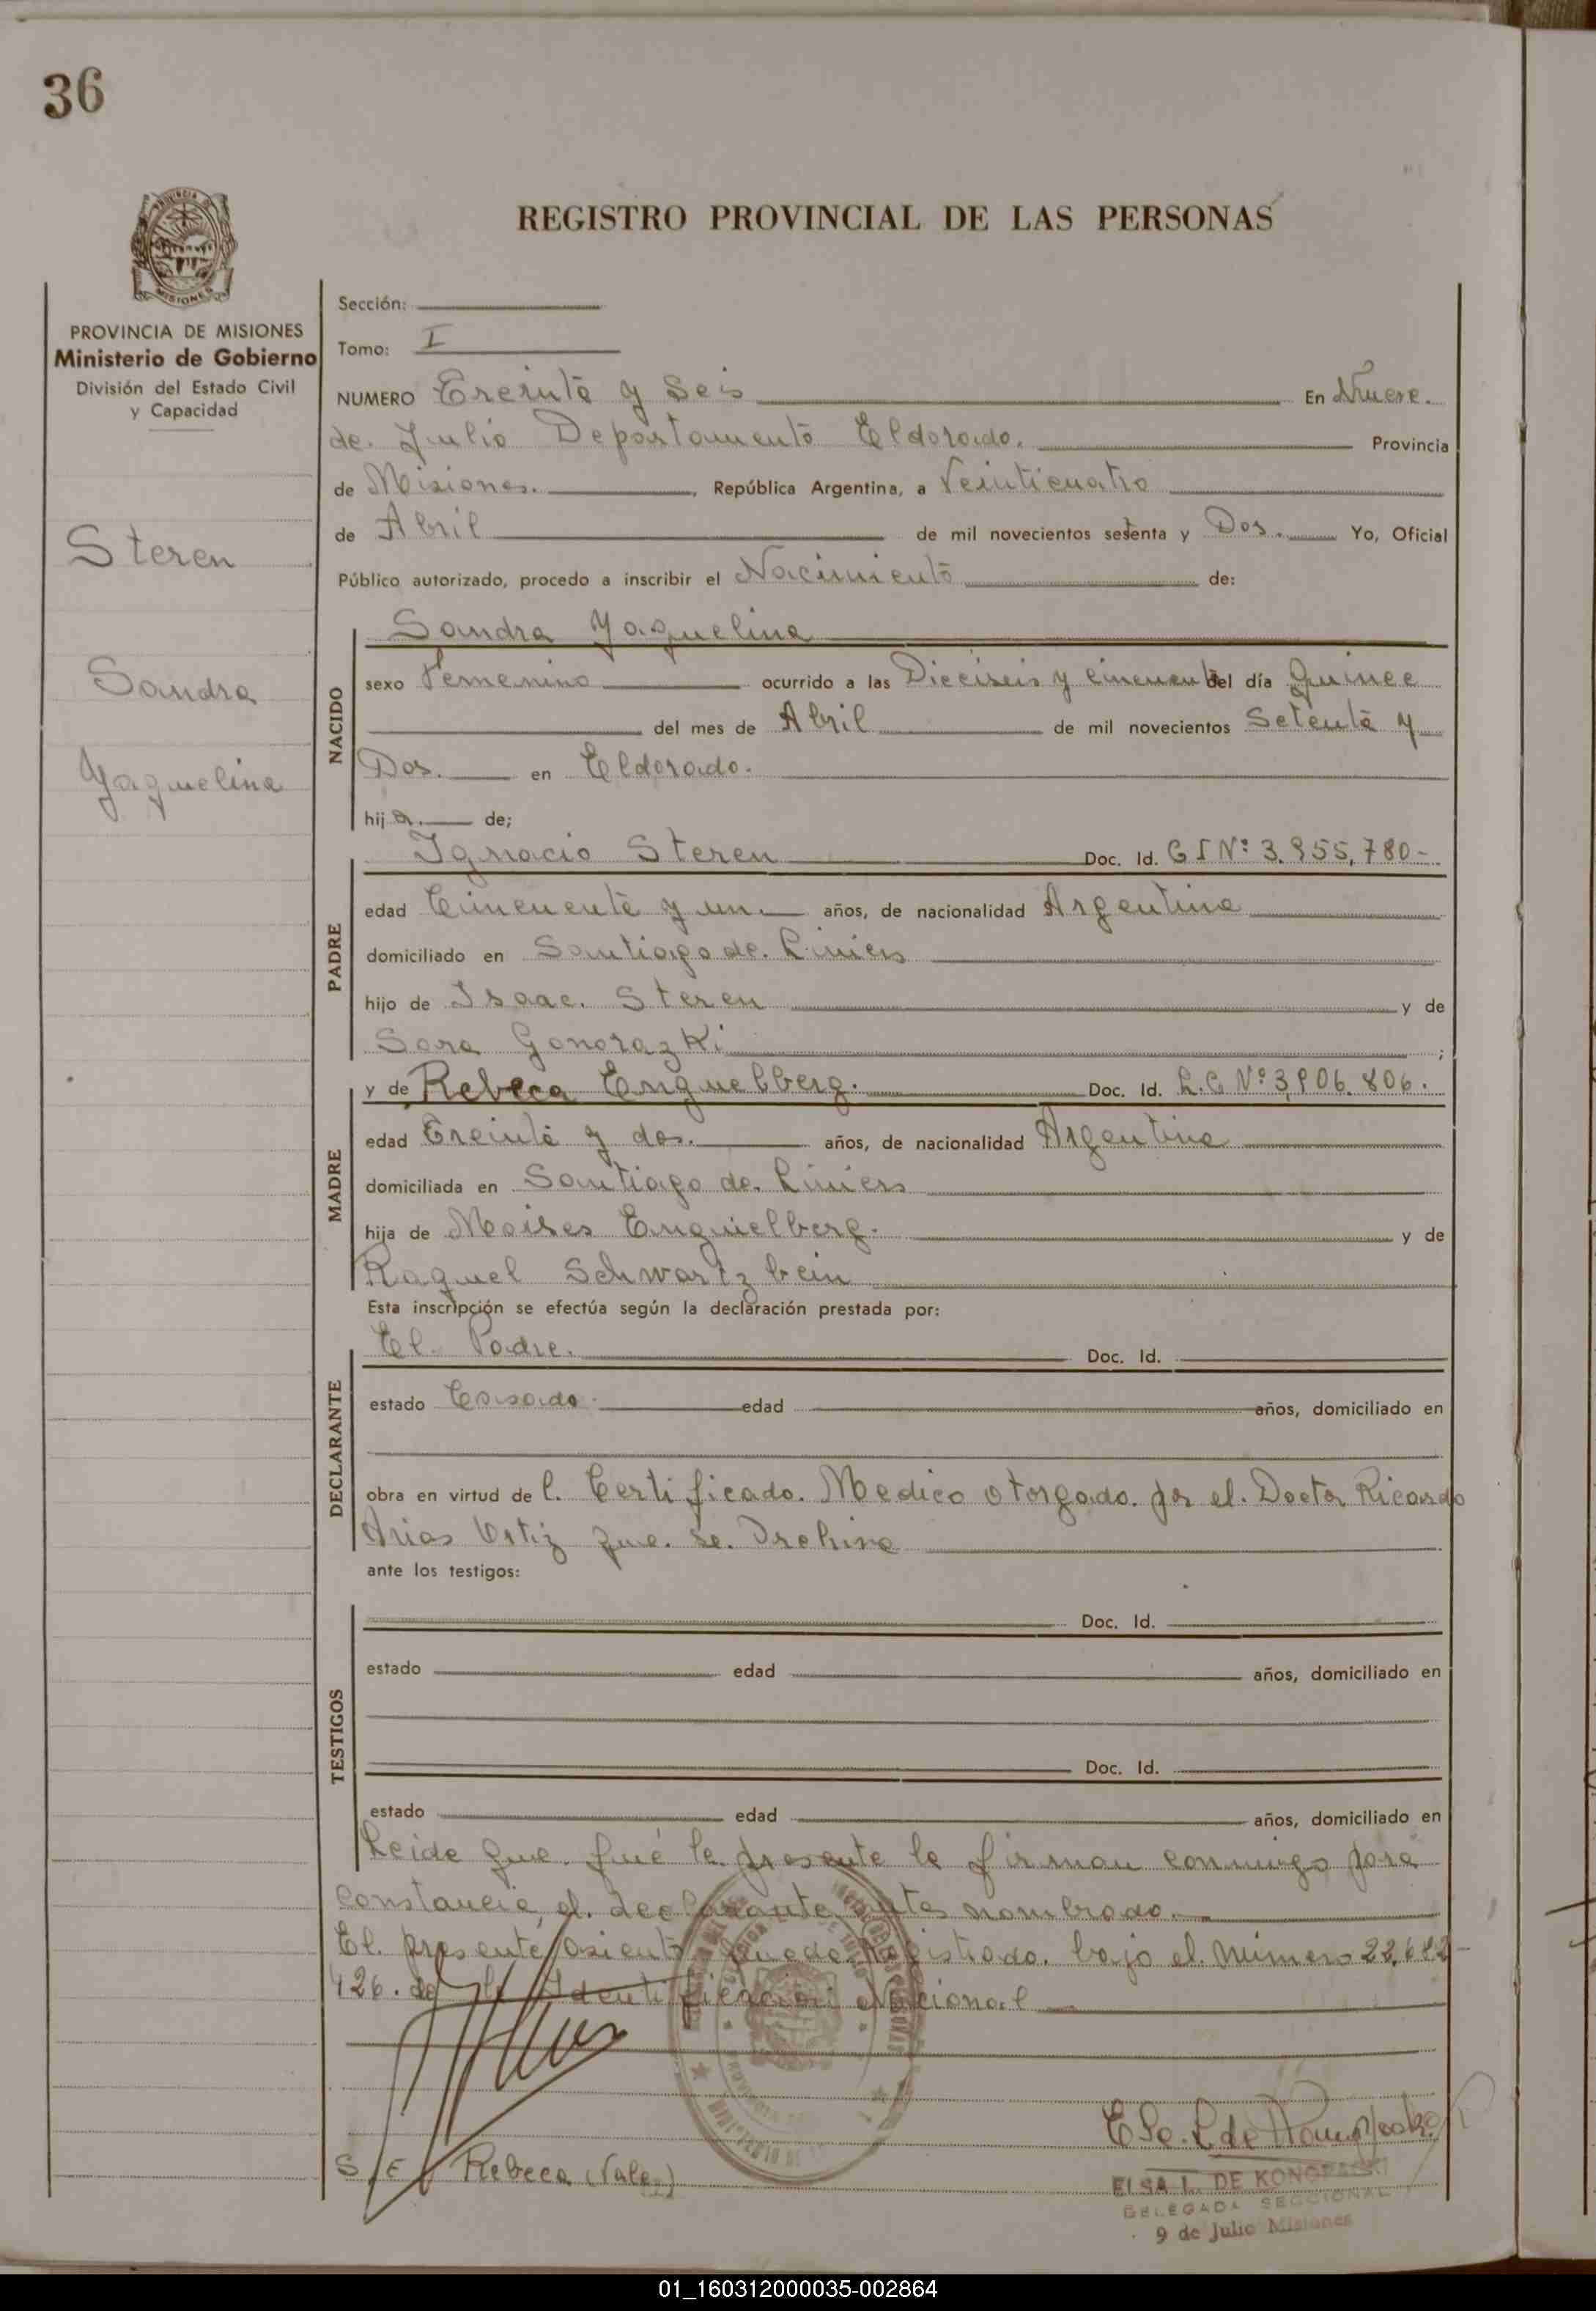 36
REGISTRO PROVINCIAL DE LAS PERSONAS
PROVINCIA DE MISIONES
Ministerio de Gobierno
División del Estado Civil
y Capacidad
Steren
Sandra
Yaquelina
Sección:
Tomo: I
NUMERO Treinta y Seis En Nueve.
de. Julio Departamento Eldorado. Provincia
de Misiones. , República Argentina, a Veinticuatro
de Abril de mil novecientos setenta y Dos. Yo, Oficial
Público autorizado, procedo a inscribir el Nacimiento de:
NACIDO
Sandra Yaquelina
sexo Femenino ocurrido a las Dieciseis y cincuenta del día Quince
del mes de Abril de mil novecientos Setenta y
Dos. en Eldorado.
hija. de;
PADRE
Ignacio Steren Doc. Id. C I Nº 3.955,780-
edad Cincuenta y un. años, de nacionalidad Argentina
domiciliado en Santiago de. Liniers
hijo de Isaac. Steren y de
Sara Gonorazki ;
MADRE
y de Rebeca Enguelberg. Doc. Id. L.C Nº 3,906.806.
edad Treinta y dos. años, de nacionalidad Argentina
domiciliada en Santiago de. Liniers
hija de Moises Enguielberg. y de
Raquel Schwartzbein
Esta inscripción se efectúa según la declaración prestada por:
DECLARANTE
El. Padre. Doc. Id.
estado Casado. edad años, domiciliado en
obra en virtud de l. Certificado. Medico otorgado. por el. Doctor Ricardo
Arias Ortiz que. se. Archiva
ante los testigos:
TESTIGOS
Doc. Id.
estado edad años, domiciliado en
Doc. Id.
estado edad años, domiciliado en
Leida que. fué la presente la firman conmigo para
constancia el. declarante antes nombrado.
El. presente asiento queda registrado. bajo el. número 22,682-
426. de la Identificación Nacional
S/E/ Rebeca (Vale)
ELSA L. DE KONOPACKI
DELEGADA SECCIONAL
9 de Julio Misiones
01_160312000035-002864